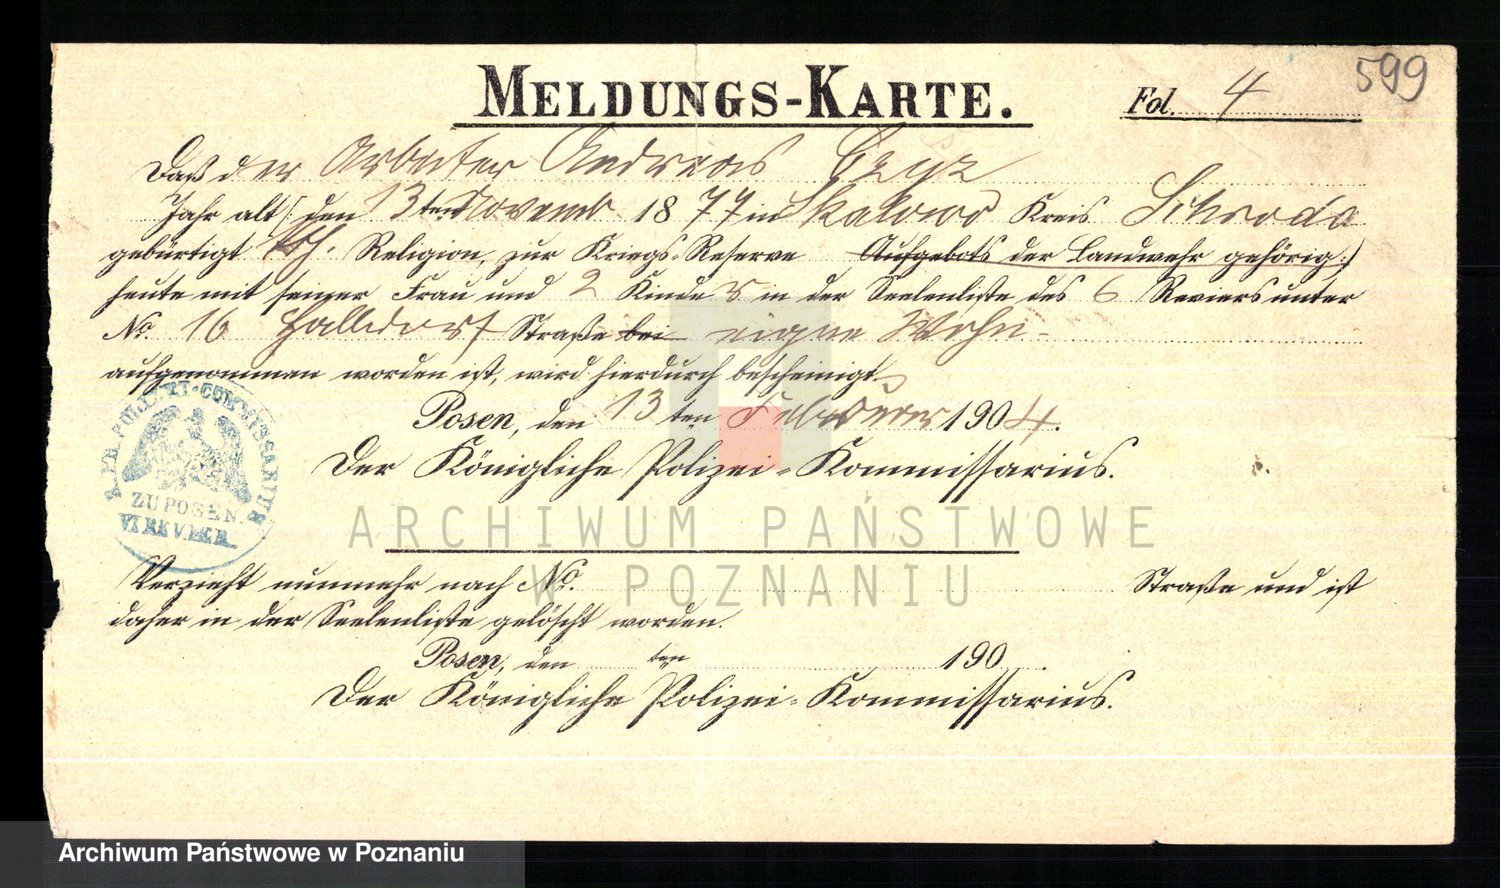 599
MELDUNGS-KARTE. Fol. 4
Daß der Arbeiter Andreas Czyz
Jahr alt/ den 13ten Novemb 1877 in Skalowo Kreis Schroda
gebürtigt kth. Religion, zur Kriegs-Reserve Aufgebots der Landwehr gehörig:/
heute mit seiner Frau und 2 Kinder in der Seelenliste des 6 Reviers unter
No. 16 Halldorf Straße bei eigne Wohn-
aufgenommen worden ist, wird hierdurch bescheinigt.
Posen, den 13ten Februar 1904.
Der Königliche Polizei-Kommissarius.
POLIZEI-COMMISSARIUS
ZU POSEN
VI REVIER
ARCHIWUM PAŃSTWOWE
W POZNANIU
Verzieht nunmehr nach No. Straße und ist
daher in der Seelenliste gelöscht worden.
Posen, den ten 190 .
Der Königliche Polizei-Kommissarius.
Archiwum Państwowe w Poznaniu